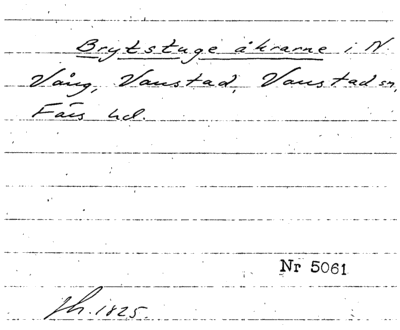 Brytstuge åkrarne i N
Vång, Vanstad, Vanstad sn,
Färs hd.
Nr 5061
Jh. 1825.